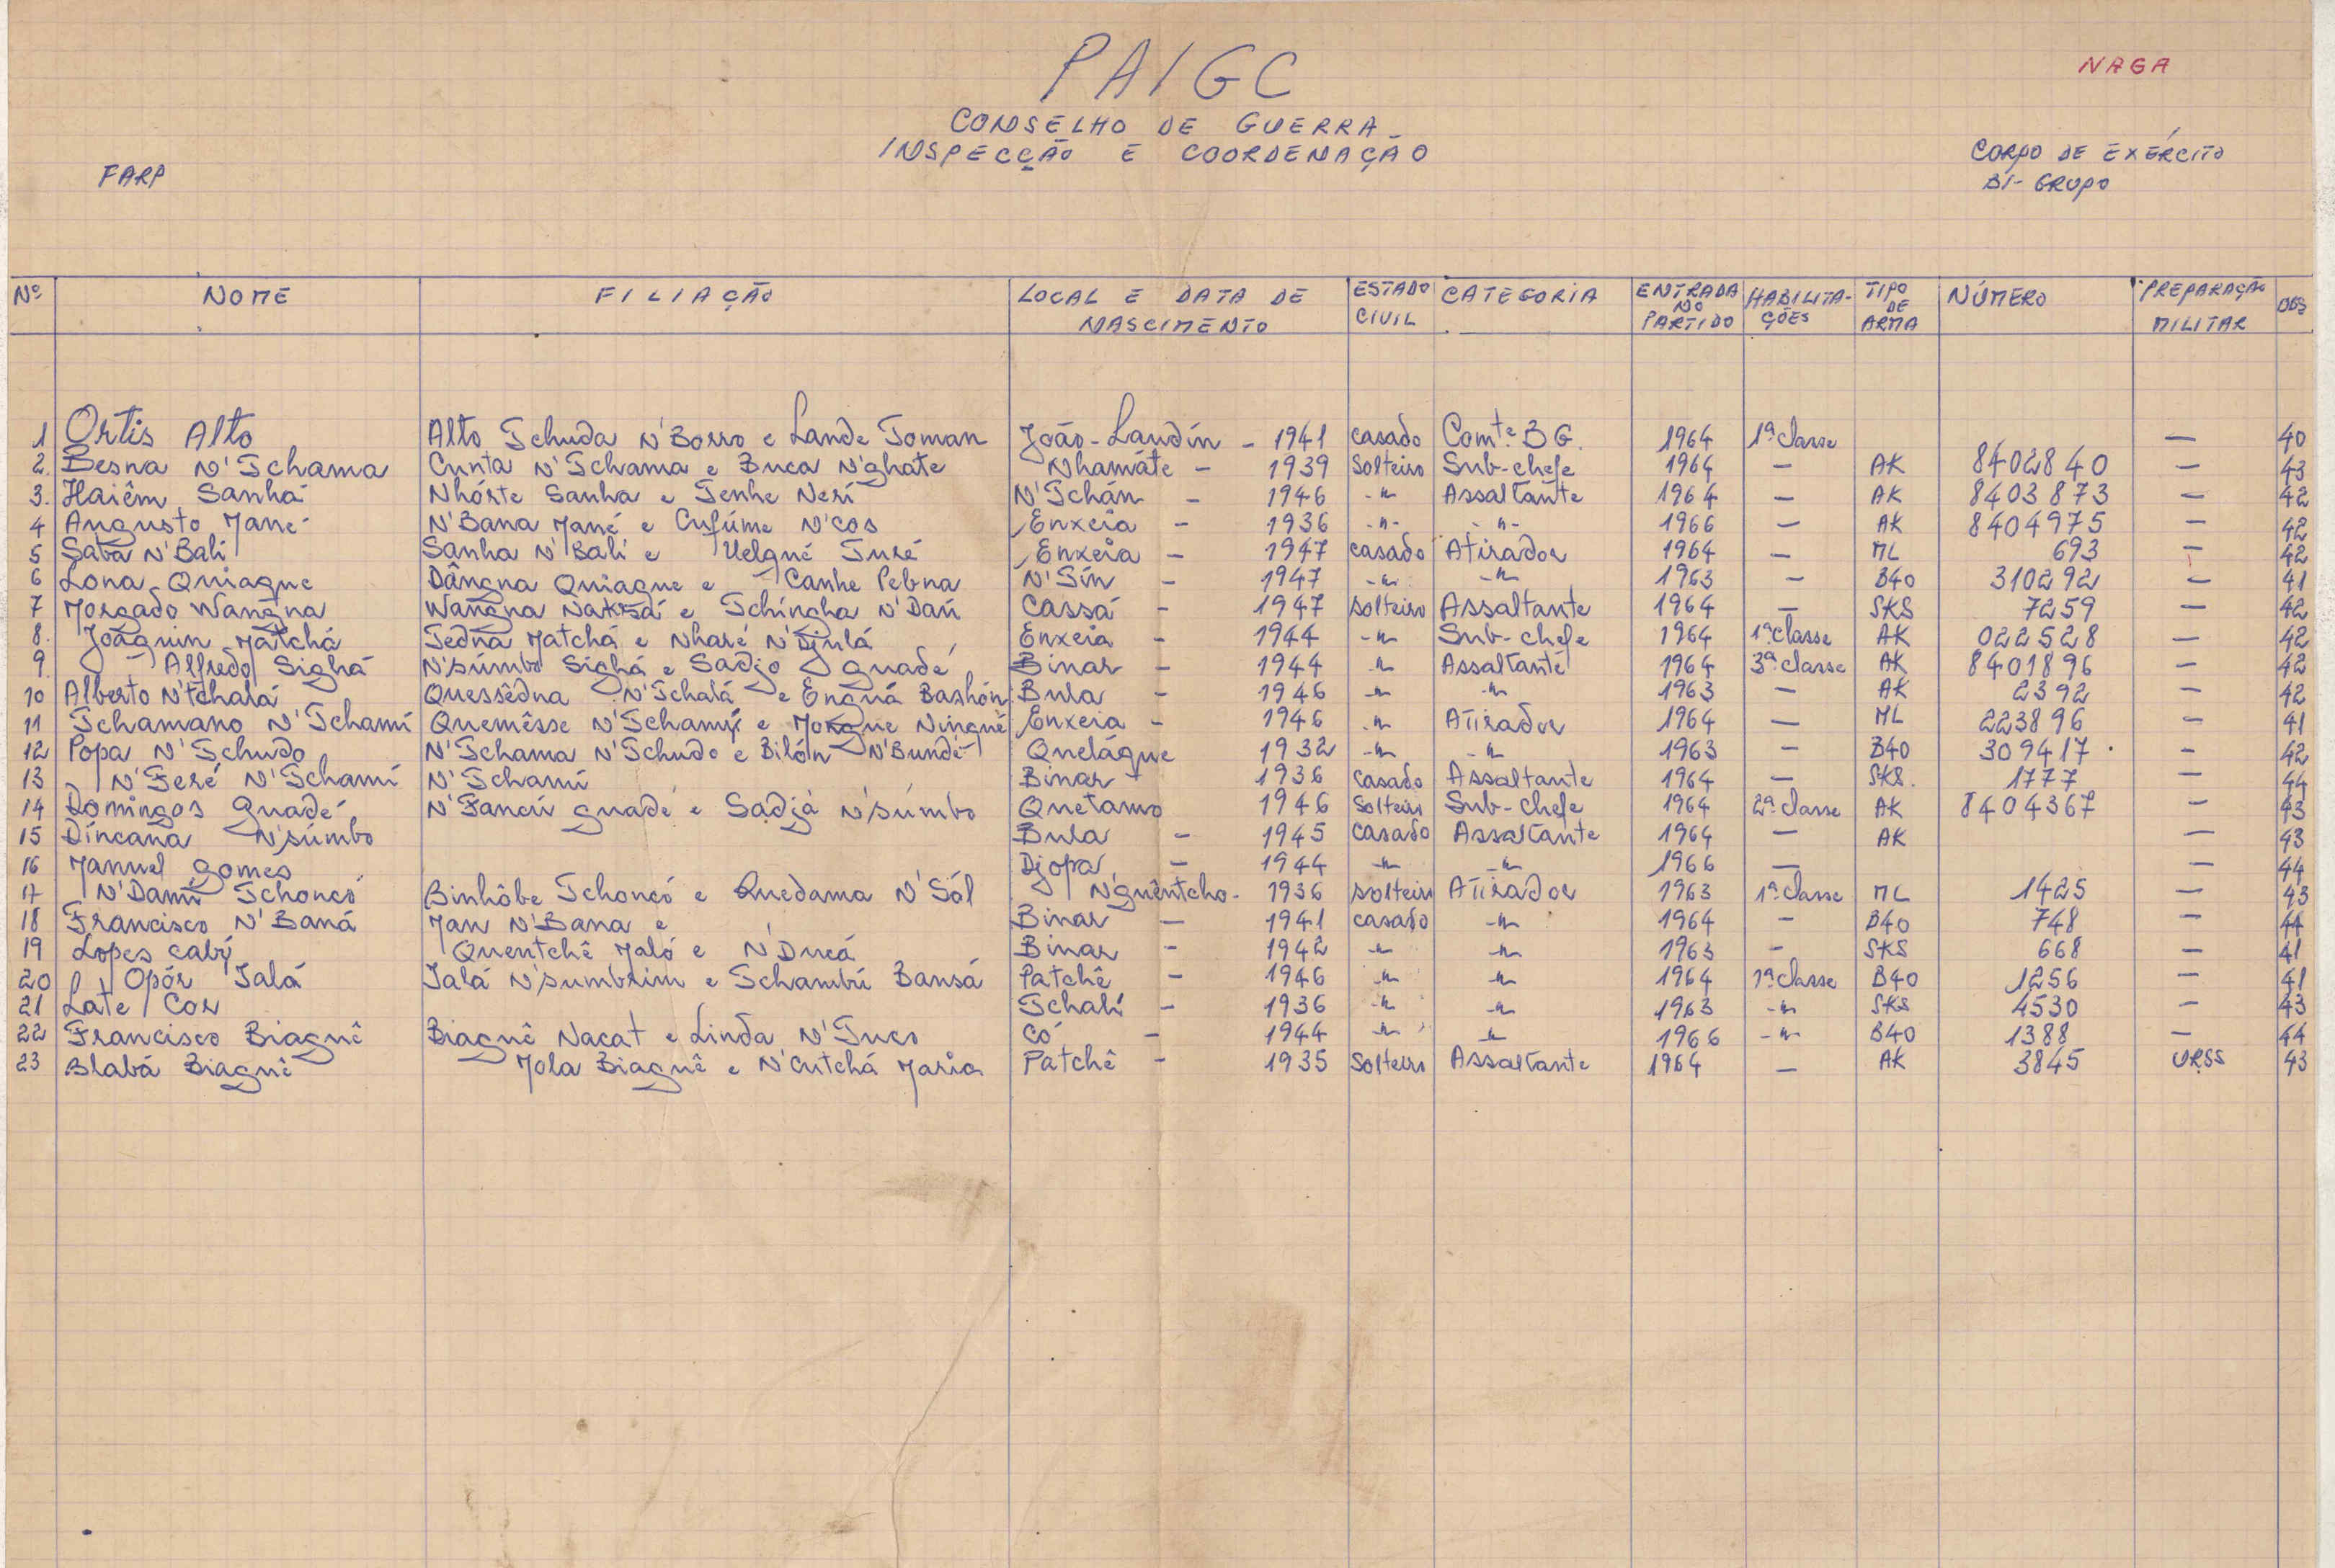 PAIGC
NAGA
CONSELHO DE GUERRA
INSPECÇÃO E COORDENAÇÃO
FARP
CORPO DE EXÉRCITO
BI-GRUPO
Nº NOME FILIAÇÃO LOCAL E DATA DE NASCIMENTO ESTADO CIVIL CATEGORIA ENTRADA NO PARTIDO HABILITAÇÕES TIPO DE ARMA NÚMERO PREPARAÇÃO MILITAR OBS
1 Ortis Alto Alto Tchuda N'Borro e Lande Toman João-Landín - 1941 casado Comte. BG. 1964 1ª classe — 40
2. Besna N'Tchama Cunta N'Tchama e Buca N'ghate Nhamáte - 1939 Solteiro Sub-chefe 1964 — AK 8402840 — 43
3. Haiêm Sanhá Nhórte Sanha e Tenhe Nerí N'Tchán - 1946 -"- Assaltante 1964 — AK 8403873 — 42
4 Augusto Mané N'Bana Mané e Cufúme N'cos Enxeia - 1936 -"- -"- 1966 — AK 8404975 — 42
5 Saba N'Bali Sanha N'Bali e Uelgué Turé Enxeia - 1947 casado Atirador 1964 — ML 693 — 42
6 Lona Quiague Dângna Quiague e Canhe Pebna N'Sín - 1947 -"- -"- 1963 — B40 310292 — 41
7 Morgado Wangna Wangna e Tchíngha N'Dañ Cassá - 1947 solteiro Assaltante 1964 — SKS 7259 — 42
8. Joaquin Matchá Tedna Matchá e Nharé N'Djulá Enxeia - 1944 -"- Sub-chefe 1964 1ª classe AK 022528 — 42
9. Alfredo Sighá N'súmbo Sighá e Sadjo guadé Binar - 1944 -"- Assaltante 1964 3ª classe AK 8401896 — 42
10 Alberto N'tchalá Quessêdna N'Tchalá e Enguá Bashón Bula - 1946 -"- -"- 1963 — AK 2392 — 42
11 Tchamano N'Tchamí Quemêsse N'Tchamí e Ninguê Enxeia - 1946 -"- Atirador 1964 — ML 223896 — 41
12 Popa N'Tchudo N'Tchama N'Tchudo e Bilón N'Bundé Quelágue 1932 -"- -"- 1963 — B40 309417 — 42
13 N'Feré N'Tchamí N'Tchamí Binar - 1936 casado Assaltante 1964 — SKS. 1777 — 44
14 Domingos guadé N'Fancú guadé e Sadjá N'súmbo Quetamo 1946 Solteiro Sub-chefe 1964 2ª classe AK 8404367 — 43
15 Dincana N'súmbo Bula - 1945 casado Assaltante 1964 — AK — 43
16 Manuel gomes Djopa - 1944 -"- -"- 1966 — — 44
17 N'Damí Tchoncó Binhôbe Tchoncó e Quedama N'Sól N'guêntcho - 1936 solteiro Atirador 1963 1ª classe ML 1425 — 43
18 Francisco N'Baná Man N'Bana e Binar - 1941 casado -"- 1964 — B40 748 — 44
19 Lopes cabí Quentchê Maló e N'Ducá Binar - 1942 -"- -"- 1963 — SKS 668 — 41
20 Opór Ialá Ialá N'sumbrim e Tchambú Bansá Patchê - 1946 -"- -"- 1964 1ª classe B40 1256 — 41
21 Late Cor Tchalí - 1936 -"- -"- 1963 -"- SKS 4530 — 43
22 Francisco Biaguê Biaguê Nacat e Linda N'Tuco Có - 1944 -"- -"- 1966 -"- B40 1388 — 44
23 Blabá Biaguê Mola Biaguê e N'Cutchá Maria Patchê - 1935 Solteiro Assaltante 1964 — AK 3845 URSS 43